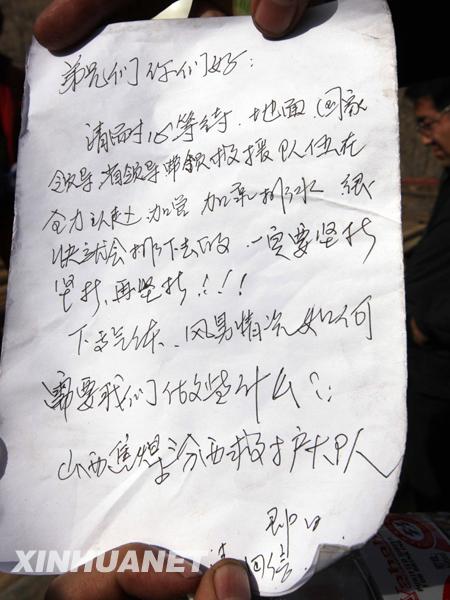 弟兄们你们好:
请耐心等待.地面.国家
领导.省领导带领救援队伍在
全力以赴.加管 加泵排水 很
快就会排下去的.一定要坚持
坚持.再坚持!!!
下支气体.风易情况如何
需要我们做些什么?
山西焦煤汾西救护大队
即日
请回信
XINHUANET